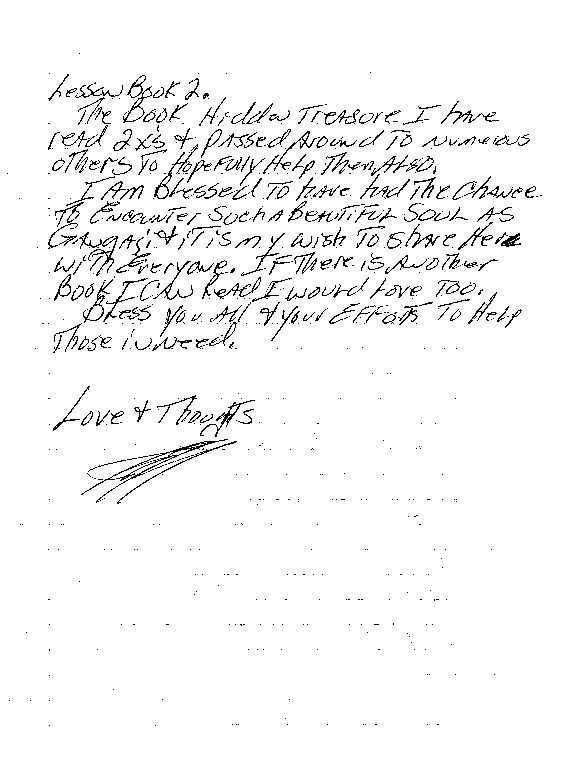 Lesson Book 2.
The Book Hidden Treasure I have
read 2x's & passed Around To Numerous
others To Hopefully Help Them, Also.
I Am Blessed To have had The Chance
To Encounter Such A Beautiful Soul As
Gangaji & iT is my wish To share Here
with Everyone. If There is Another
Book I CAN Read I would Love Too.
Bless you all & your Efforts To Help
Those in Need.
Love & Thoughts